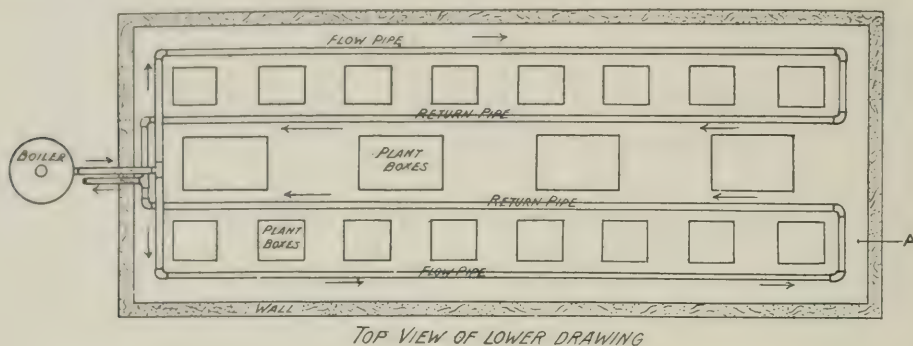 FLOW PIPE
RETURN PIPE
BOILER
PLANT
BOXES
RETURN PIPE
PLANT
BOXES
A
FLOW PIPE
WALL
TOP VIEW OF LOWER DRAWING